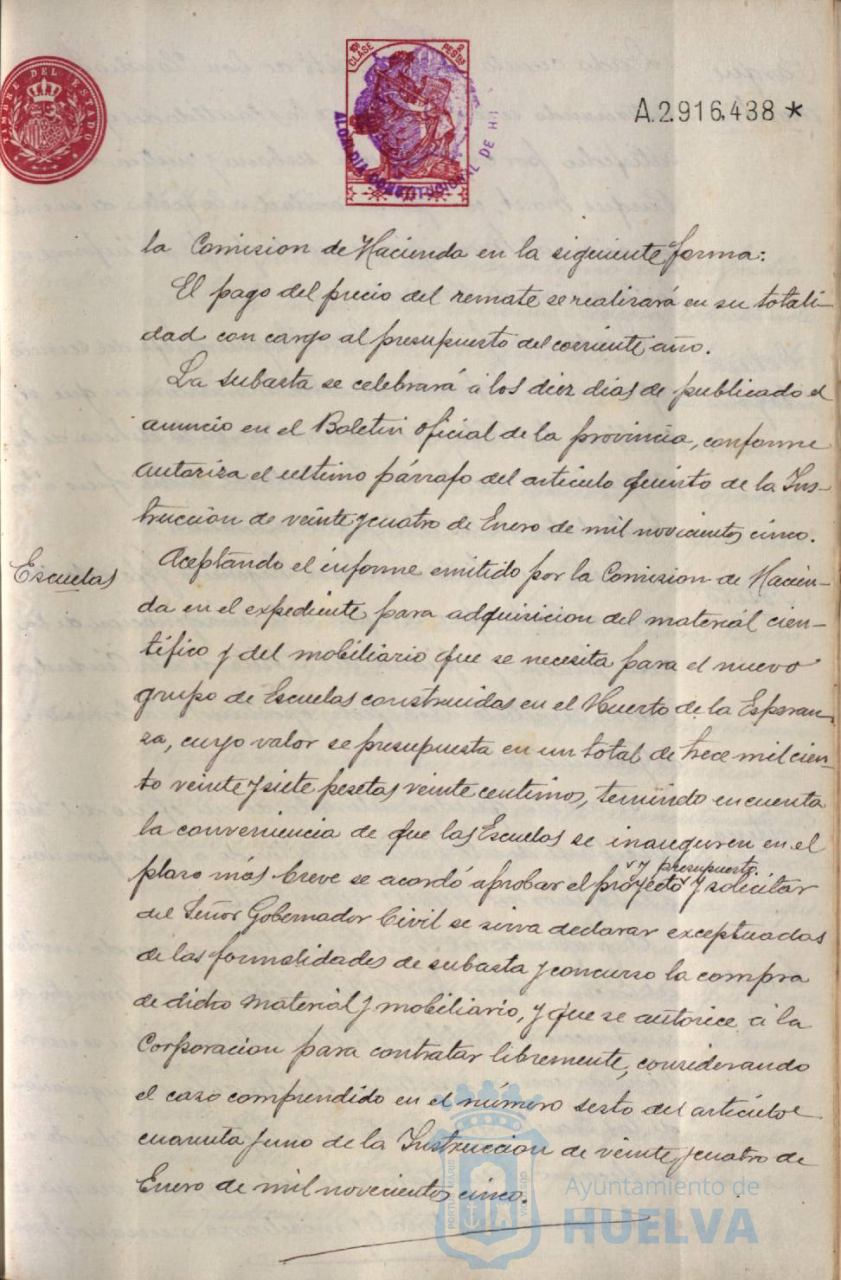 TIMBRE DEL ESTADO
10ª CLASE
2 PESETAS
ALCALDIA CONSTITUCIONAL DE
A.2.916,438 *
la Comision de Hacienda en la siguiente forma:
El pago del precio del remate se realizará en su totali-
dad con cargo al presupuesto del corriente año.
La subasta se celebrará á los diez dias de publicado el
anuncio en el Boletin oficial de la provincia, conforme
autoriza el ultimo párrafo del articulo quinto de la Ins-
truccion de veinte y cuatro de Enero de mil novecientos cinco.
Escuelas
Aceptando el informe emitido por la Comision de Hacien-
da en el expediente para adquisicion del material cien-
tífico y del mobiliario que se necesita para el nuevo
grupo de Escuelas construidas en el Huerto de la Esperan-
za, cuyo valor se presupuesta en un total de trece mil cien-
to veinte y siete pesetas veinte centimos, teniendo en cuenta
la conveniencia de que las Escuelas se inauguren en el
y presupuesto
plazo más breve se acordó aprobar el proyecto y solicitar
del Señor Gobernador Civil se sirva declarar exceptuadas
de las formalidades de subasta y concurso la compra
de dicho material y mobiliario, y que se autorice á la
Corporacion para contratar libremente, considerando
el caso comprendido en el número sesto del articulo
cuarenta y uno de la Instruccion de veinte y cuatro de
Enero de mil novecientos cinco.
Ayuntamiento de
HUELVA